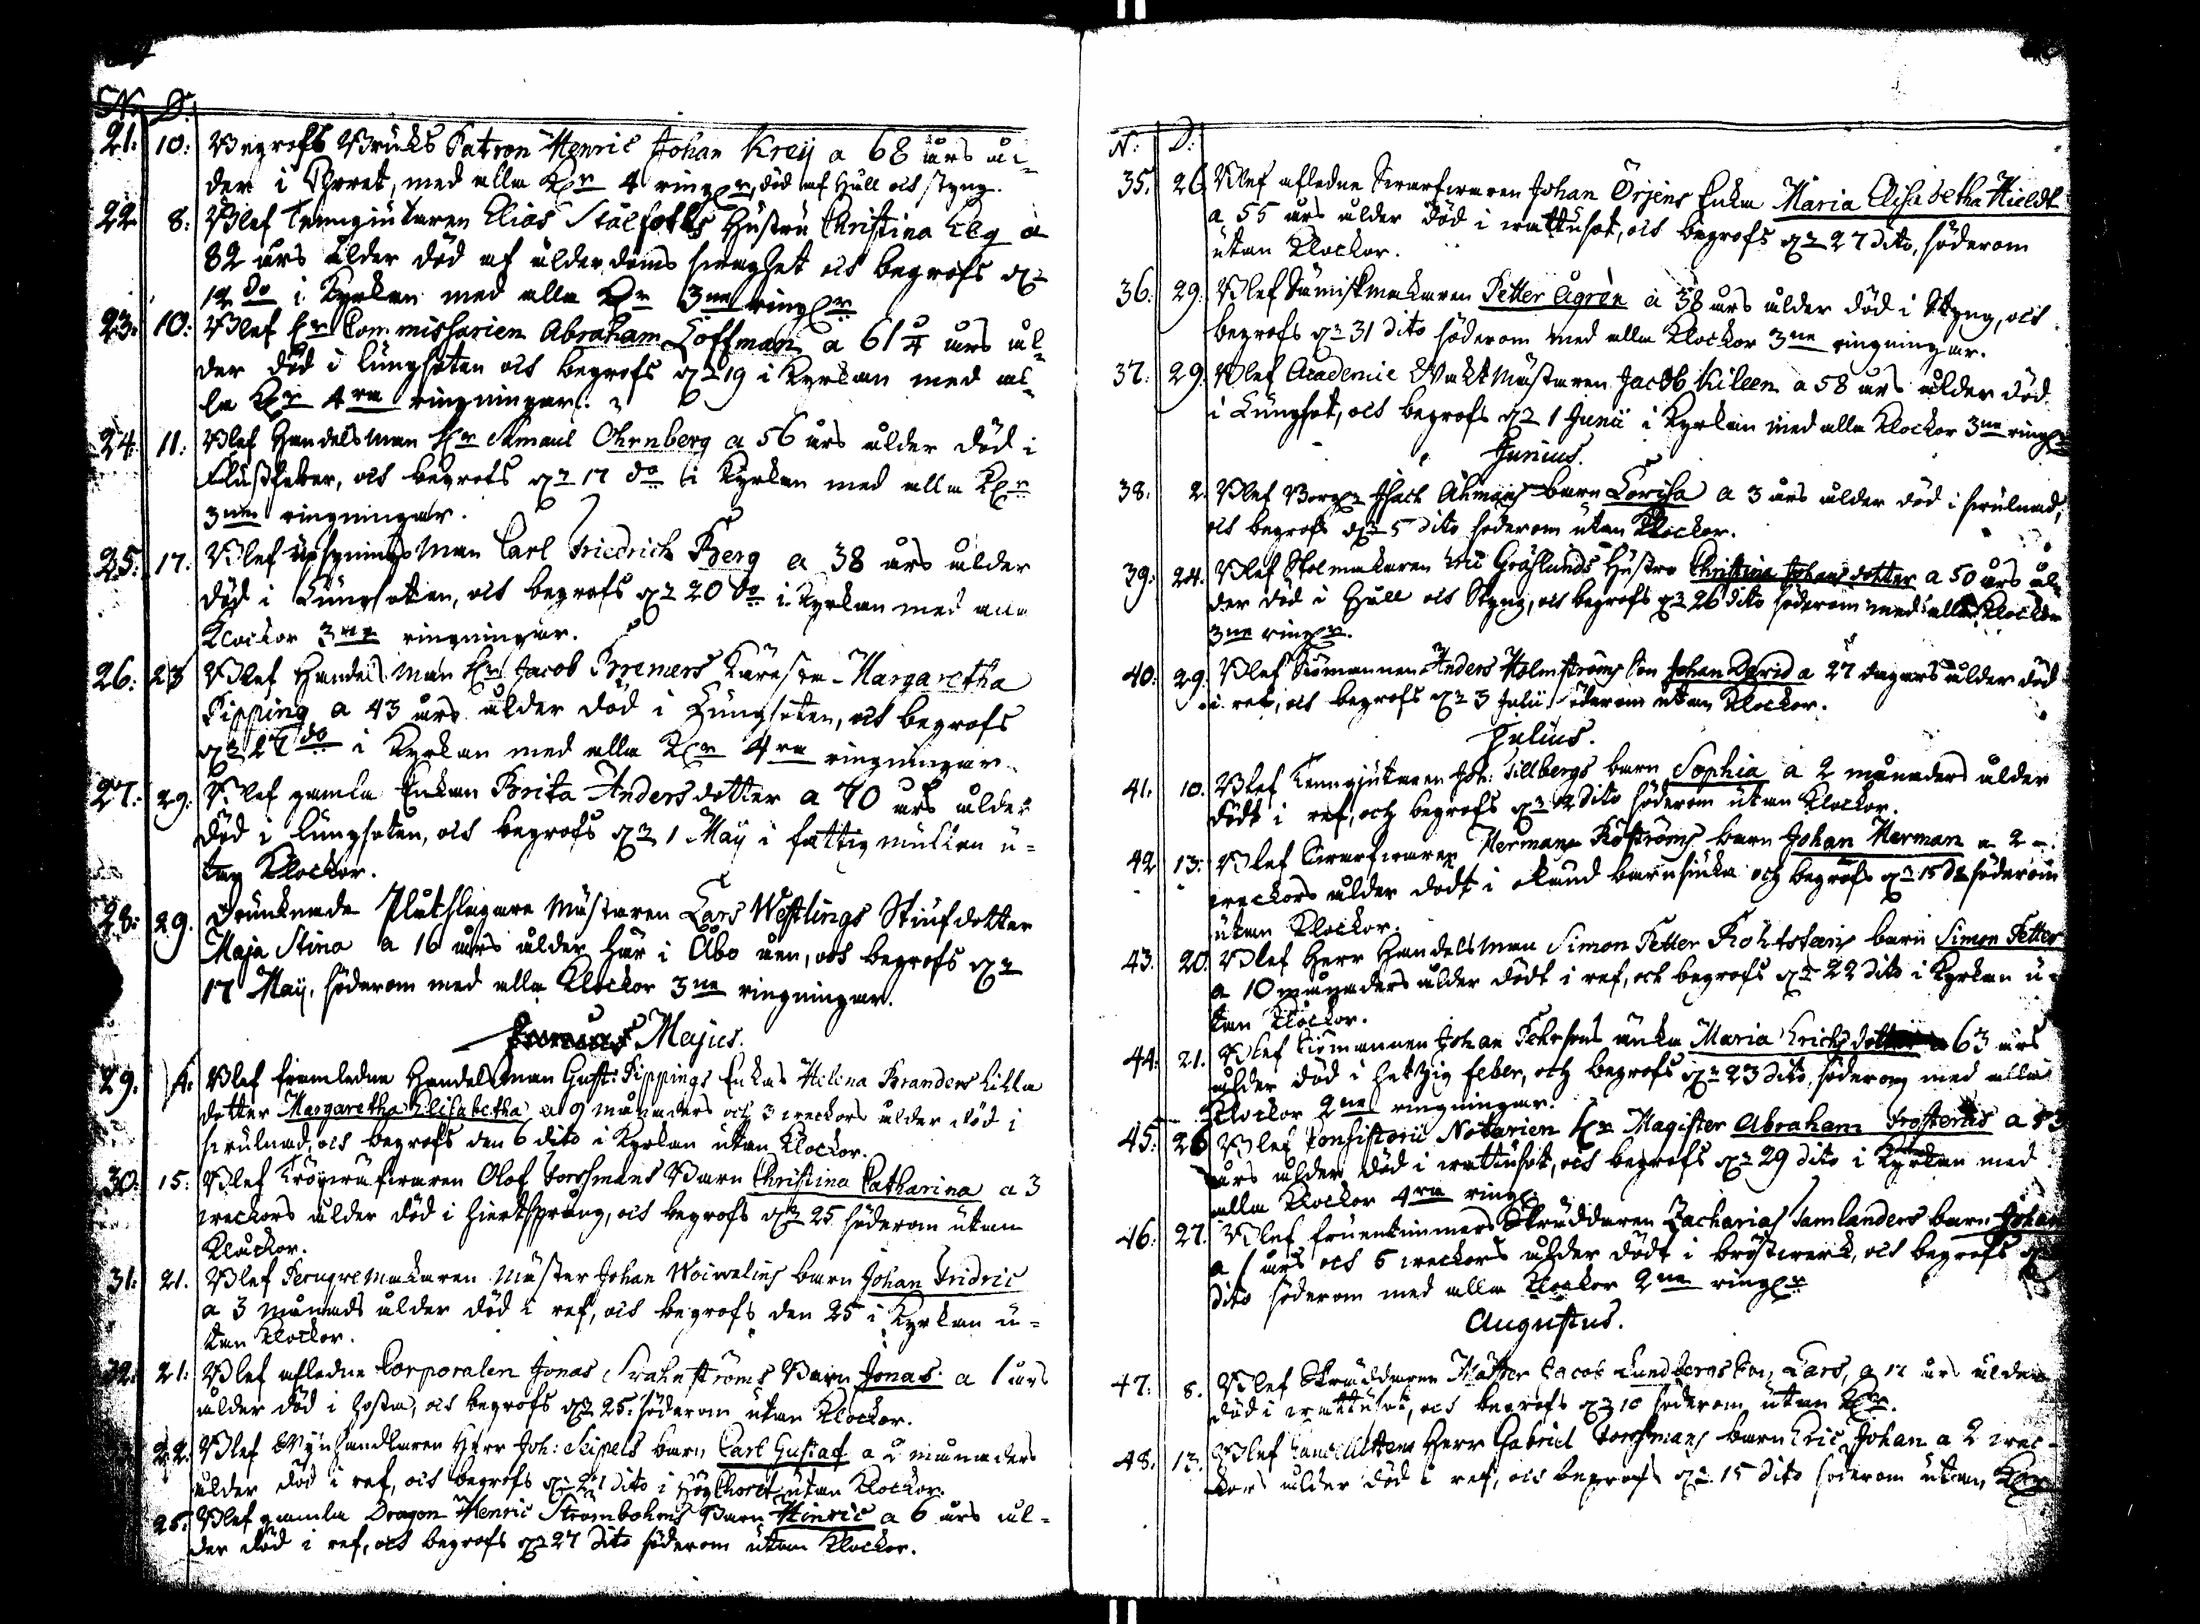 N. D.
21. 10. Begrofs Bruks Patron Henric Johan Kreij a 68 års ål-
der i Choret, med alla Kr 4 ring:r, död af Håll och styng.
22. 8. Blef Tenngiutaren Elias Stålfotts Hustru Christina Elg a
82 års ålder död af ålderdoms swaghet och begrofs d:n
12 do i Kyrkan med alla Kr 3ne ring:r
23. 10. Blef Hr Commissarien Abraham Loffman a 61 ¾ års ål-
der död i lungsoten och begrofs d:n 19 i Kyrkan med al-
la Kr 4ra ringningar.
24. 11. Blef Handelsman Hr Samuel Ohrnberg a 56 års ålder död i
Flussfeber, och begrofs d:n 17 do i Kyrkan med alla Kr
3ne ringningar.
25. 17. Blef upsyningsman Carl Friedrich Berg a 38 års ålder
död i Lungsoten, och begrofs d:n 20 do i Kyrkan med alla
Klockor 3ne ringningar.
26. 23 Blef Handelsman Hr Jacob Bremers Käresta Margaretha
Pipping a 43 års ålder död i Lungsoten, och begrofs
d:n 27 do i Kyrkan med alla Kr 4ra ringningar.
27. 29. Blef gamla Enkan Brita Andersdotter a 70 års ålder
död i lungsoten, och begrofs d:n 1 Maij i fattig mullen u-
tan Klockor.
28. 29. Drunknade Plåtslagare Mästaren Lars Westlings Stiufdotter
Maja Stina a 16 års ålder här i Åbo åen, och begrofs d:n
17 Maij, söderom med alla Klockor 3ne ringningar.
Majus.
29. Blef framledne Handelsman Gust: Pippings Enkas Helena Branders lilla
dotter Margaretha Elisabetha a 9 månaders och 3 weckors ålder död i
swulnad, och begrofs den 6 dito i Kyrkan utan Klockor.
30. 15. Blef Olof Forssmans Barn Christina Catharina a 3
weckors ålder död i hiertsprång, och begrofs d:n 25 söderom utan
Klockor.
31. 21. Blef Peruqvemakaren Mäster Johan Woivalins barn Johan Fridric
a 3 månads ålder död i ref, och begrofs den 25 i Kyrkan u-
tan Klockor.
32. 21. Blef afledne Corporalen Jonas Swahnströms Barn Jonas a 1 års
ålder död i hosta, och begrofs d:n 25. söderom utan Klockor.
22. Blef Wijnhandlaren Herr Joh: Seipels barn Carl Gustaf a 2 månaders
ålder död i ref, och begrofs d:n 24 dito i Hög Choret utan Klockor.
25. Blef gamla Dragon Henric Strömbohms Barn Hinric a 6 års ål-
der död i ref, och begrofs d:n 27 dito söderom utan Klockor.
N: D:
35. 26. Blef afledne Swarfwaren Johan Örjens Enka Maria Elisabetha Hieldt
a 55 års ålder död i wattusot, och begrofs d:n 27 dito, söderom
utan Klockor.
36. 29. Blef Sämiskmakaren Petter Ågrén a 38 års ålder död i Styng, och
begrofs d:n 31 dito söderom med alla Klockor 3ne ringningar.
37. 29. Blef Academie Wakt Mästaren Jacob Kileen a 58 års ålder död
i Lungsot, och begrofs d:n 1 Junii i Kyrkan med alla Klockor 3ne ring:r
Junius.
38. 2. Blef Borg:n Isach Åhmans barn Lovisa a 3 års ålder död i swulnad,
och begrofs d:n 5 dito söderom utan Klockor.
39. 24. Blef Stolmakaren Eric Gräslunds Hustro Christina Johansdotter a 50 års ål-
der död i Håll och Styng, och begrofs d:n 26 dito söderom med alla Klockor
3ne ring:r.
40. 29. Blef Siömannen Anders Holmströms Son Johan David a 27 dagars ålder död
i ref, och begrofs d:n 3 Julii söderom utan Klockor.
Julius.
41. 10. Blef Tenngiutaren Joh: Tillbergs barn Sophia a 2 månaders ålder
dödt i ref, och begrofs d:n 12 dito söderom utan Klockor.
42 13. Blef Swarfwaren Herman Boströms barn Johan Herman a 2
weckors ålder dödt i okänd barnsiuka och begrofs d:n 15 do söderom
utan Klockor.
43. 20. Blef Herr Handelsman Simon Petter Bohtsteens barn Simon Petter
a 10 månaders ålder dödt i ref, och begrofs d:n 22 dito i Kyrkan u-
tan Klockor.
44. 21. Blef Siömannen Johan Pehrsons änka Maria Erichsdotter a 63 års
ålder död i hetzig feber, och begrofs d:n 23 dito söderom med alla
Klockor 2ne ringningar.
45. 26 Blef Consistorii Notarien Hr Magister Abraham Frosterus a 53
års ålder död i wattusot, och begrofs d:n 29 dito i Kyrkan med
alla Klockor 4ra ring:
46. 27. Blef fruentimmers Skräddaren Zacharias Samlanders barn Johan
a 1 års och 6 weckors ålder dödt i bröstwerk, och begrofs
dito söderom med alla Klockor 2ne ring:r
Augustus.
47. 8. Blef Skräddaren Mäster Jacob Lundbergs Son Lars, a 12 års ålder
död i wattusot, och begrofs d:n 10 söderom utan Kr.
48. 13. Blef Herr Gabriel Forssmans barn Eric Johan a 2 wec-
kors ålder död i ref, och begrofs d:n 15 dito söderom utan Kr